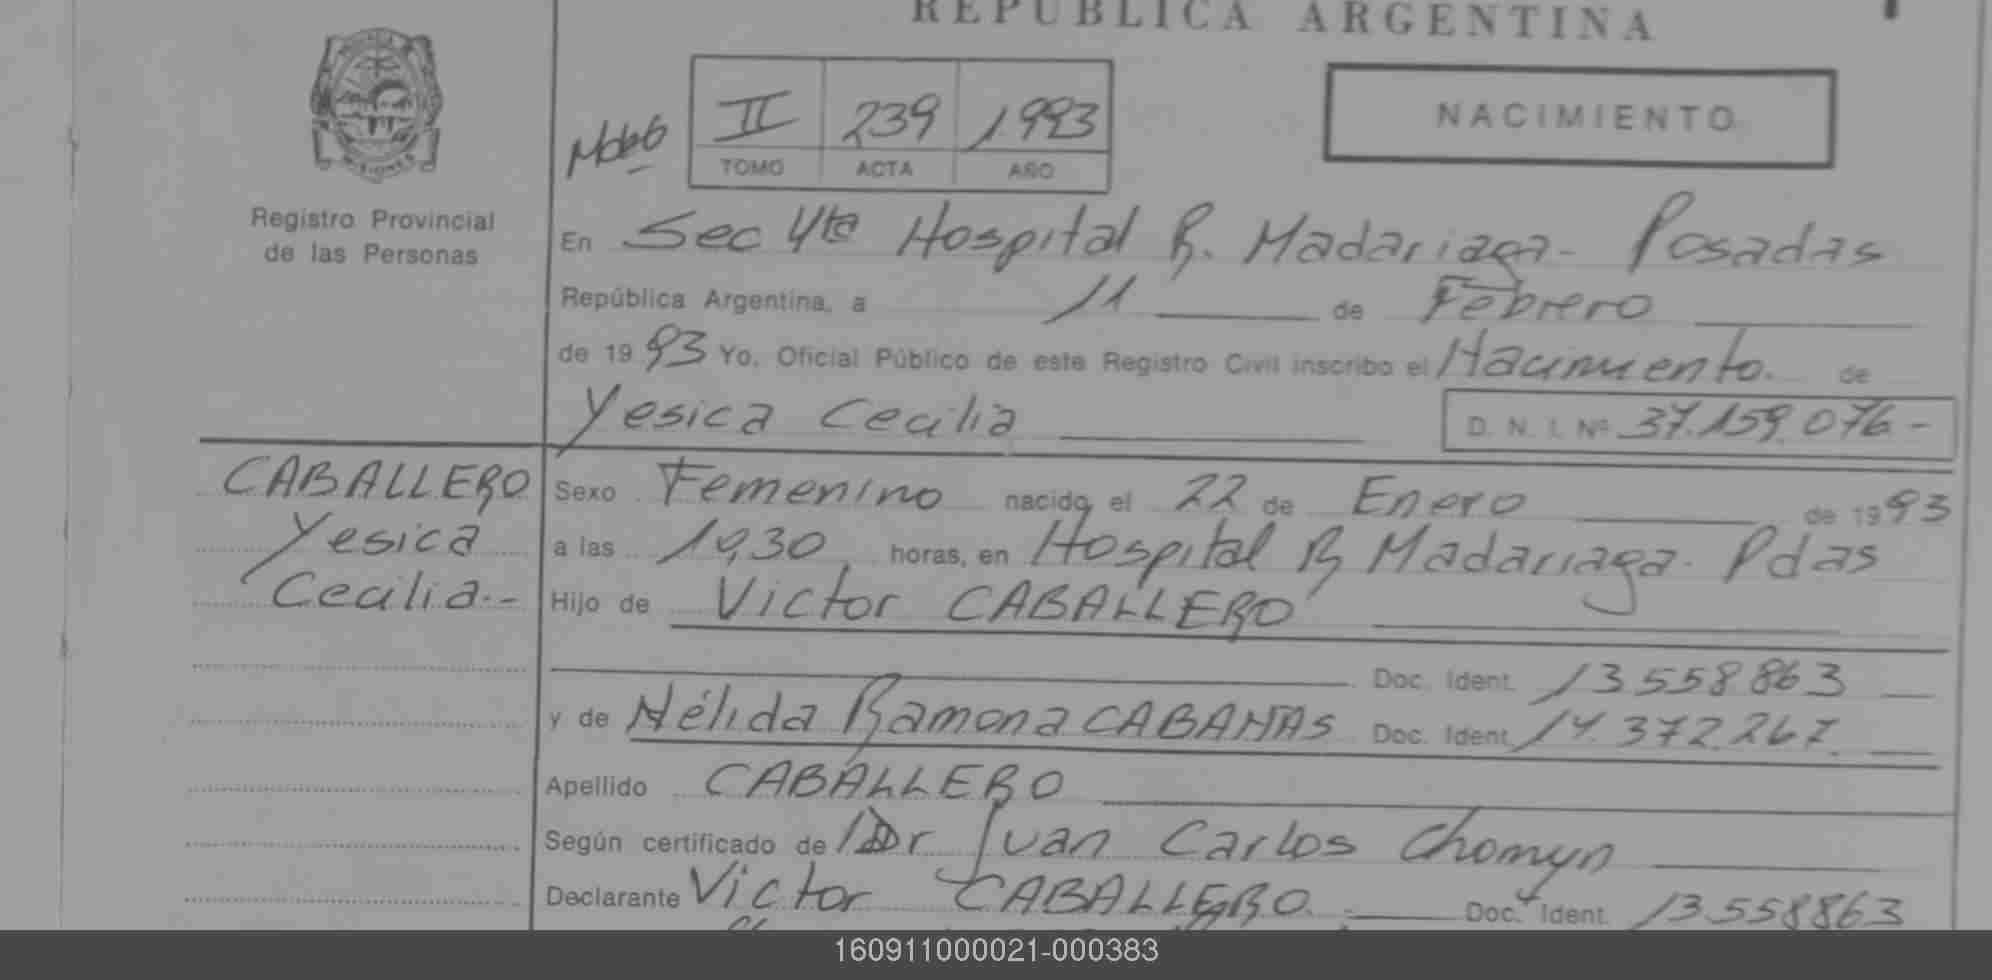 REPUBLICA ARGENTINA
NACIMIENTO
II 239 1993
TOMO ACTA AÑO
Registro Provincial
de las Personas
En Sec 4ta Hospital R. Madariaga - Posadas
República Argentina, a 11 de Febrero
de 1993 Yo, Oficial Público de este Registro Civil inscribo el Nacimiento. de
Yesica Cecilia D. N. I. Nº 37.159.076 -
CABALLERO
Yesica
Cecilia.-
Sexo Femenino nacido el 22 de Enero de 1993
a las horas, en Hospital R Madariaga. Pdas
Hijo de Victor CABALLERO
Doc. Ident. 13558863
y de Nélida Ramona CABANAS Doc. Ident. 14.372.267.
Apellido CABALLERO
Según certificado de Dr Juan Carlos Chomyn
Declarante Victor CABALLERO. Doc. Ident. 13558863
160911000021-000383